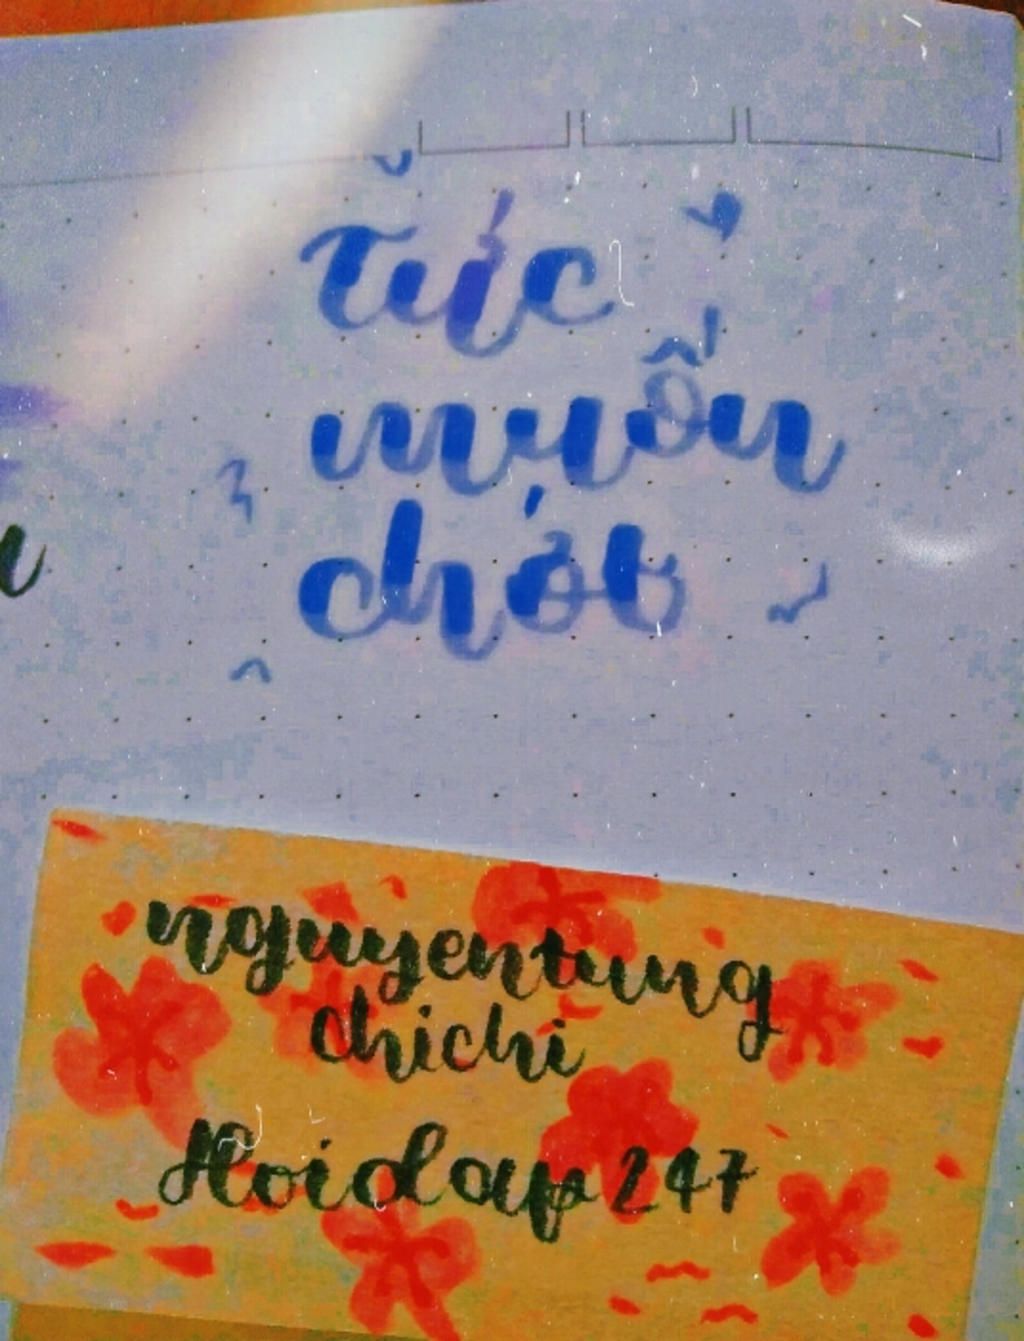 tức
muốn
chớt
nguyentung
chichi
Hoidap 247